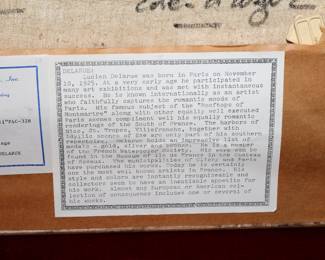 Inc.
1"FAC-328
age
DELARUE
DELARUE:
Lucien Delarue was born in Paris on November
10, 1925. At a very early age he participated in
many art exhibitions and was met with instantaneous
success. He is known internationally as an artist
who faithfully captures the romantic moods of
Paris. His famous subject of the "Rooftops of
Montmartre" along with other equally well executed
Paris scenes compliment well his equally romantic
renderings of the South of France. The harbors of
Nice, St. Tropez, Villefranche, together with
idyllic scenes of the are only part of his southern
repertoire. Delarue has an impressive list of
medals - gold, silver and bronze. He is a member
of the French Watercolor Society. His work can be
found in the Museum of Ain in France in the Chateau
of Sceaux. The municipalities of Calais and Paris
have purchased his works. Delarue is certainly
one the most well known artists in France. His
style and colors are instantly recognizable and
collectors seem to have an insatiable appetite for
his works. Almost any European or American col-
lection of consequence includes one or several of
his works.